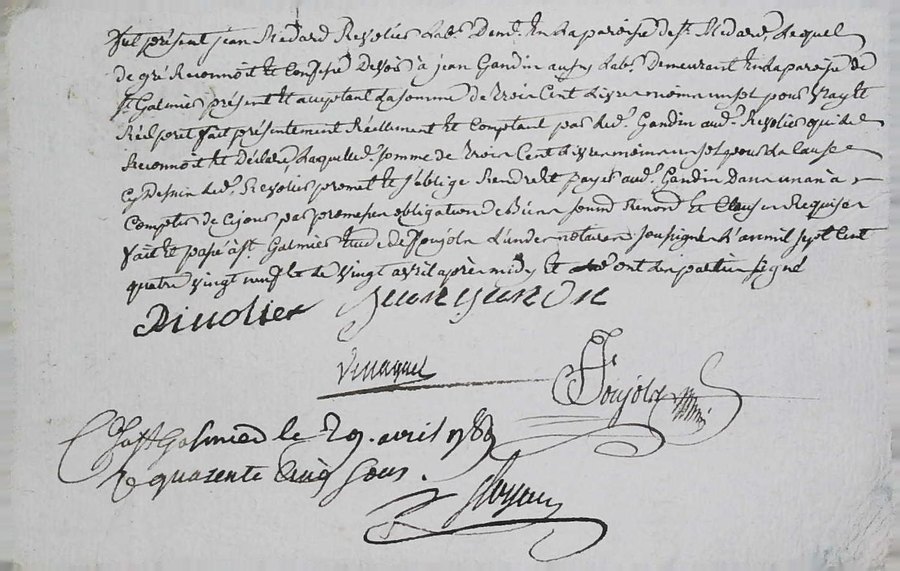 fut présent jean Médard Revolier Labr. Demt. En La paroisse de St. Médard, Lequel
de gré Reconnoit Et Confesse Devoir à jean Gandin aussy Labr. Demeurant En La paroisse de
St. Galmier présent Et acceptant La somme De trois Cent Livres moins un sol pour vray Et
Réel pret fait présentement Réellement Et Comptant par Led. Gandin aud. Revolier qui Le
Reconnoit Et Déclare, Laquelle d. somme de trois Cent Livres moins un sol pour La Cause
Cy Dessus Led. Revolier promet Et s'oblige Rendre Et payer aud. Gandin Dans un an à
Compter de Ce jour par promesse obligation de Biens soumd Renond Et Clauses Requises
fait Et passé à St. Galmier Etude de Poujolx L'un des notaires soussigné L'an mil sept Cent
quatre vingt neuf Et Le vingt avril après midy Et ont Les parties signé
Rivolier jean gandin
Poujolx
St. Galmier le 29. avril 1789
quarente Cinq sous.